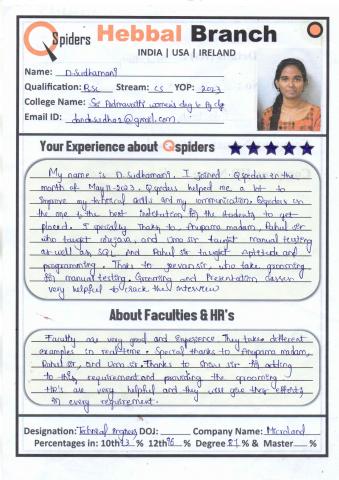 QSpiders Hebbal Branch
INDIA | USA | IRELAND
Name: D.Sudhamani
Qualification: B.Sc Stream: CS YOP: 2023
College Name: Sri Padmavathi women's deg & Pg clg
Email ID: @gmail.com
Your Experience about Qspiders
My name is D.Sudhamani, I joined Qspiders in the
month of May 11-2023. Qspiders helped me a lot to
improve my technical skills and my communication. Qspiders is
the one the best institution for the students to get
placed. I specially thanks to Anupama madam, Rahul sir
who taught me java, and Uma sir taught manual testing
as well as SQL and Rahul sir taught aptitude and
programming. Thanks to Jeevan sir, who take grooming
for manual testing. Grooming and Presentation classes
very helpful to crack the interview
About Faculties & HR's
Faculty are very good and Experience. They takes different
examples in real-time. Special thanks to Anupama madam,
Rahul sir, and Uma sir. Thanks to sir for adding
to this requirement and providing the grooming.
HR's are very helpful and they will give their efforts
in every requirement.
Designation: Technical Engineer DOJ: Company Name: Microland
Percentages in: 10th 93 % 12th 76 % Degree 81 % & Master %